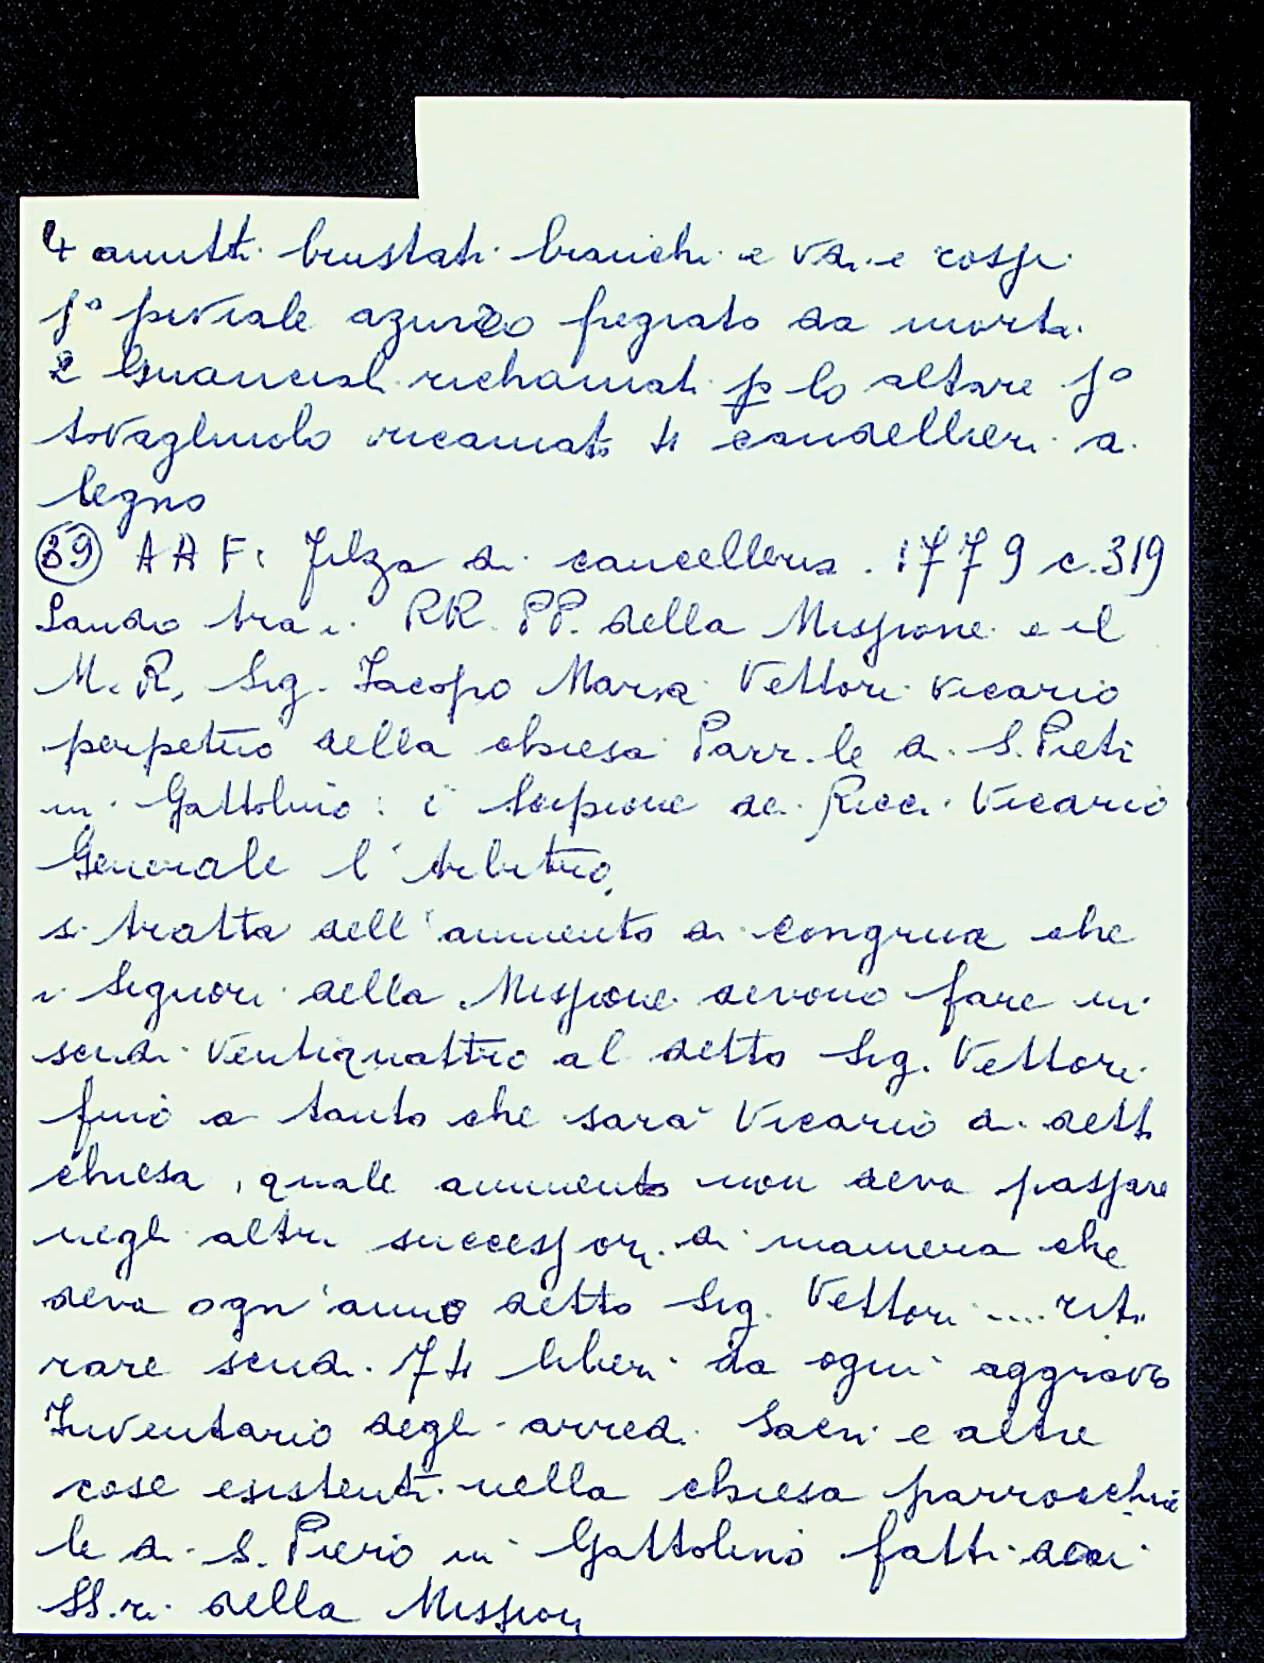 4 amitti brustati bianchi e vari e rossi
1° piviale azurro fregiato da morti
2 Guanciali richamati p lo altare 1°
tovagliuolo ricamato 4 candellieri a
legno
39 AAF: Filza di cancelleria. 1779 c.319
Laudo tra i RR. PP. della Missione e il
M. R. Sig. Iacopo Maria Vettori vicario
perpetuo della chiesa Parr.le di S. Pieti
in Gattolino: è Scipione de Ricci Vicario
Generale l'Arbitro,
si tratta dell'aumento di congrua che
i Signori della Missione devono fare in
scudi Ventiquattro al detto Sig. Vettori
fino a tanto che sarà Vicario di dett
chiesa, quale aumento non deva passare
negli altri successori di maniera che
deva ogn'anno detto Sig. Vettori .... riti
rare scudi 74 liberi da ogni aggravio
Inventario degli arredi Sacri e altre
cose esistenti nella chiesa parrocchia
le di S. Piero in Gattolino fatti dai
SS.ri della Mission